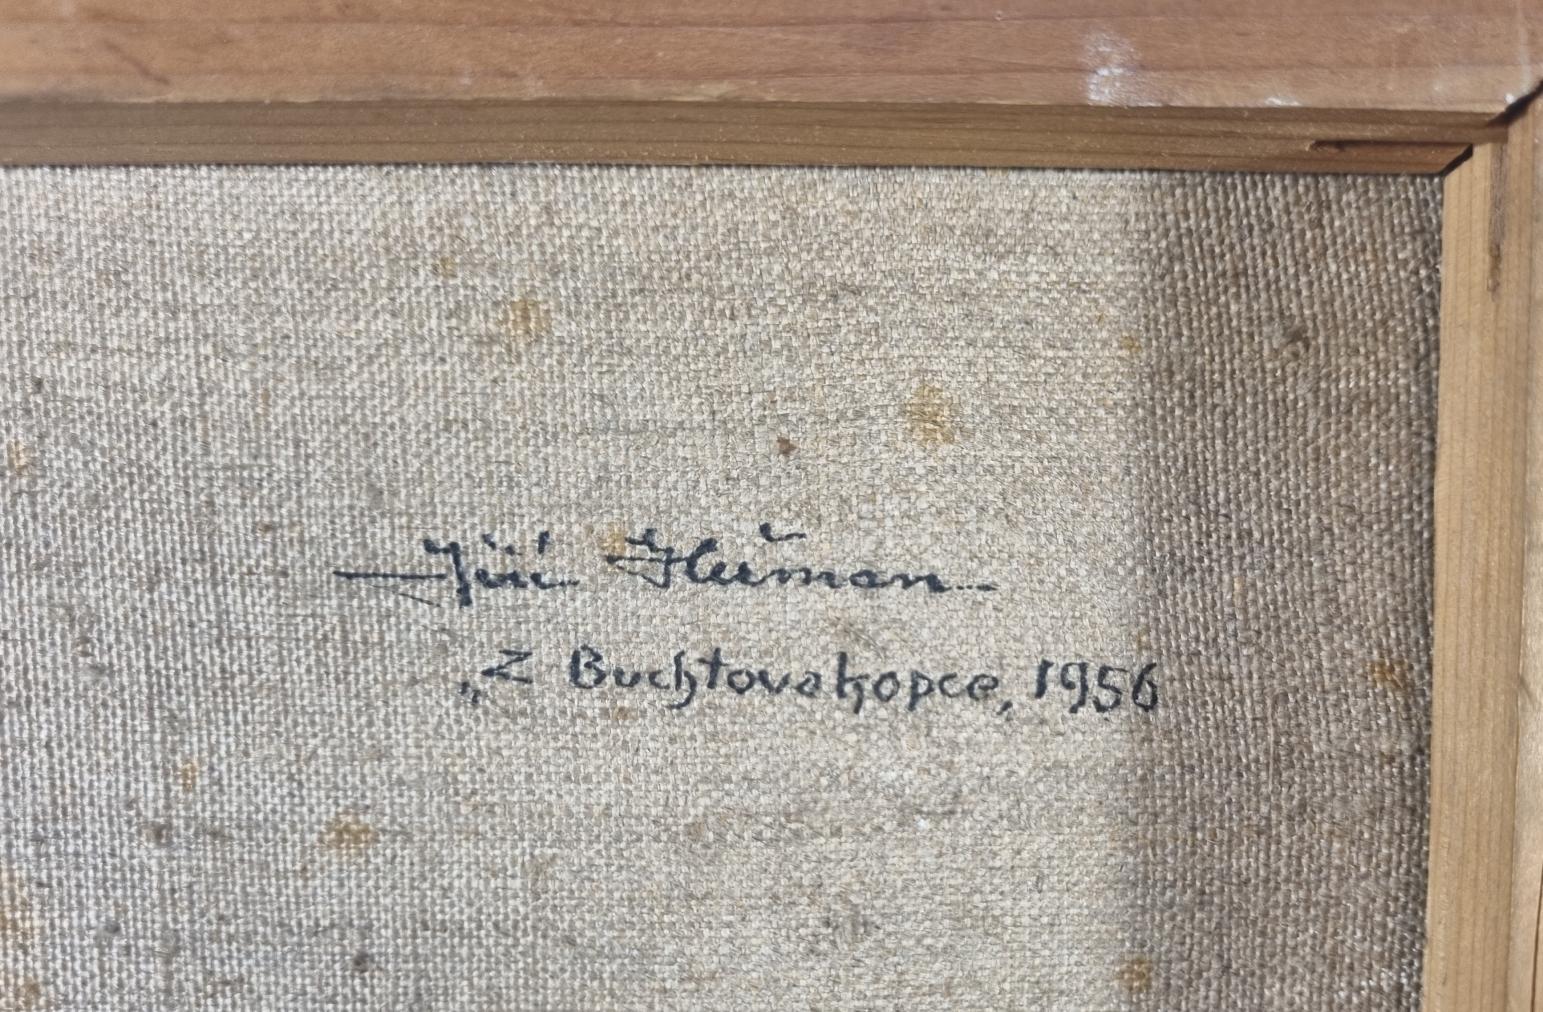 Jiří Heřman
„Z Buchtova kopce, 1956